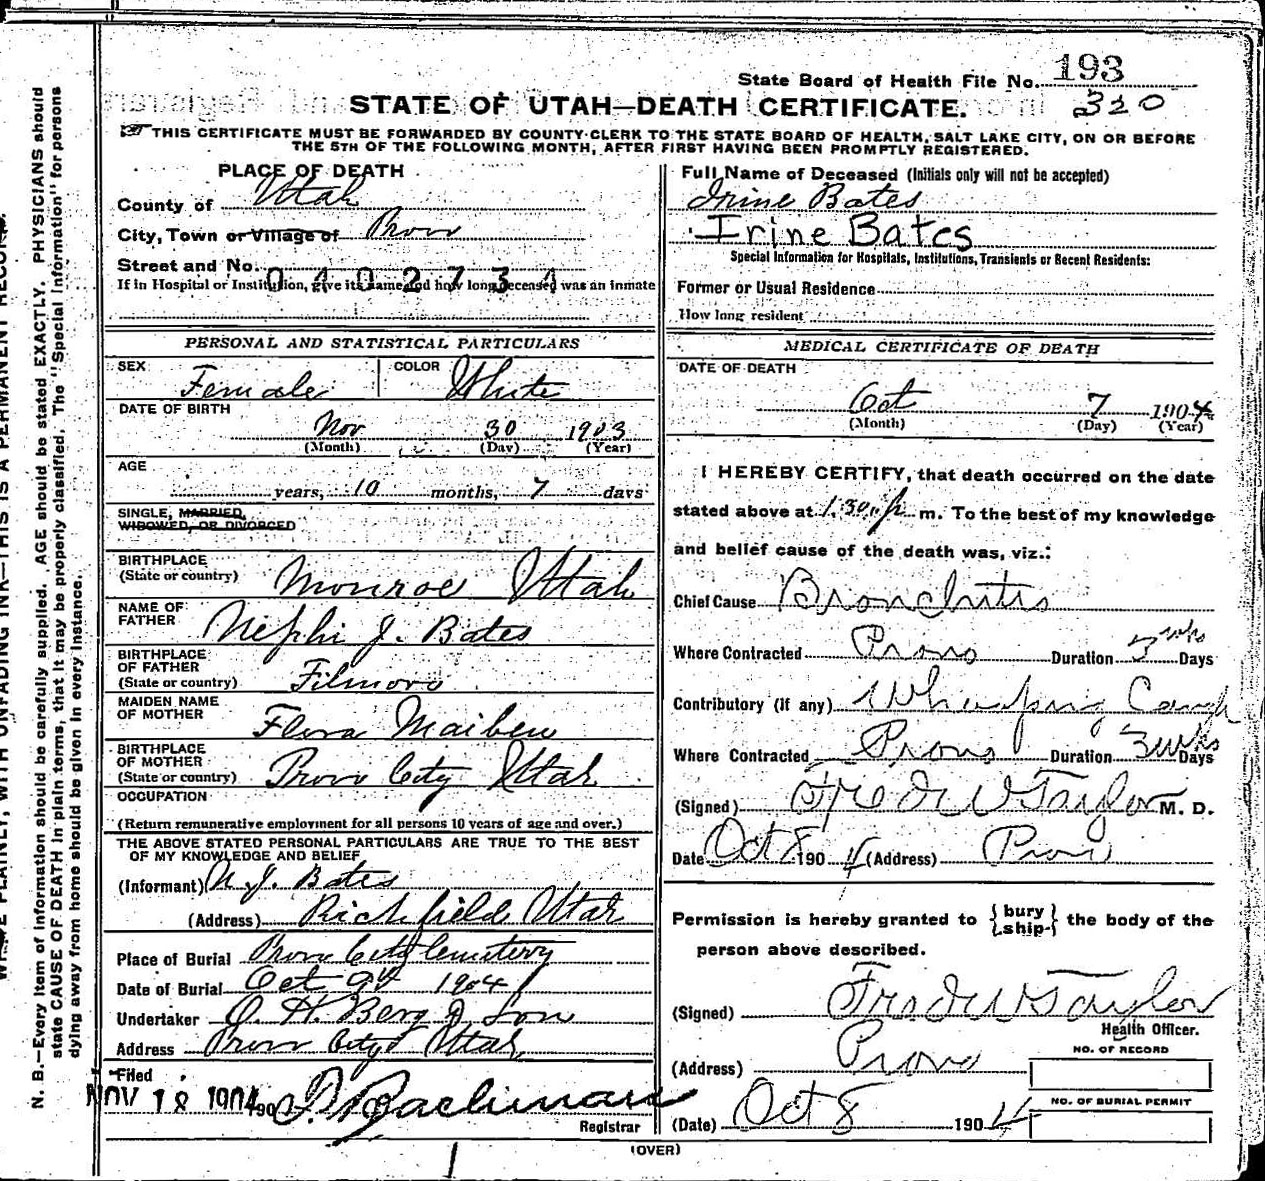 N. B.—Every item of information should be carefully supplied. AGE should be stated EXACTLY. PHYSICIANS should
state CAUSE OF DEATH in plain terms, that it may be properly classified. The "Special Information" for persons
dying away from home should be given in every instance.
State Board of Health File No. 193
STATE OF UTAH—DEATH CERTIFICATE. 320
THIS CERTIFICATE MUST BE FORWARDED BY COUNTY CLERK TO THE STATE BOARD OF HEALTH, SALT LAKE CITY, ON OR BEFORE
THE 5TH OF THE FOLLOWING MONTH, AFTER FIRST HAVING BEEN PROMPTLY REGISTERED.
PLACE OF DEATH
County of Utah
City, Town or Village of Provo
Street and No.
0402731
If in Hospital or Institution, give its name and how long deceased was an inmate
PERSONAL AND STATISTICAL PARTICULARS
SEX Female COLOR White
DATE OF BIRTH
Nov 30 1903
(Month) (Day) (Year)
AGE
years, 10 months, 7 days
SINGLE, MARRIED,
WIDOWED, OR DIVORCED
BIRTHPLACE
(State or country) Monroe Utah
NAME OF
FATHER Nephi J. Bates
BIRTHPLACE
OF FATHER
(State or country) Filmore
MAIDEN NAME
OF MOTHER Flora Maiben
BIRTHPLACE
OF MOTHER
(State or country) Provo City Utah
OCCUPATION
(Return remunerative employment for all persons 10 years of age and over.)
THE ABOVE STATED PERSONAL PARTICULARS ARE TRUE TO THE BEST
OF MY KNOWLEDGE AND BELIEF
(Informant) N. J. Bates
(Address) Richfield Utah
Place of Burial Provo City Cemetery
Date of Burial Oct 9th 1904
Undertaker O. H. Berg & Son
Address Provo City Utah
Filed
NOV 18 1904 190
Registrar
Full Name of Deceased (Initials only will not be accepted)
Irine Bates
Irine Bates
Special Information for Hospitals, Institutions, Transients or Recent Residents:
Former or Usual Residence
How long resident
MEDICAL CERTIFICATE OF DEATH
DATE OF DEATH
Oct 7 1904
(Month) (Day) (Year)
I HEREBY CERTIFY, that death occurred on the date
stated above at 1.30 p m. To the best of my knowledge
and belief cause of the death was, viz.:
Chief Cause Bronchitis
Where Contracted Provo Duration 3 wks Days
Contributory (if any) Whooping Cough
Where Contracted Provo Duration 3 wks Days
(Signed) Fred W Taylor M. D.
Date Oct 8 1904 (Address) Provo
Permission is hereby granted to { bury
ship } the body of the
person above described.
(Signed) Fred W Taylor
Health Officer.
(Address) Provo
NO. OF RECORD
NO. OF BURIAL PERMIT
(Date) Oct 8 1904
(OVER)